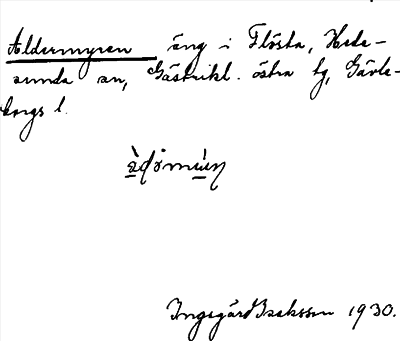 Aldermyren äng i Flösta, Hede-
sunda sn, Gästrikl. östra tg, Gävle-
borgs l.
Ingegärd Isaksson 1930.